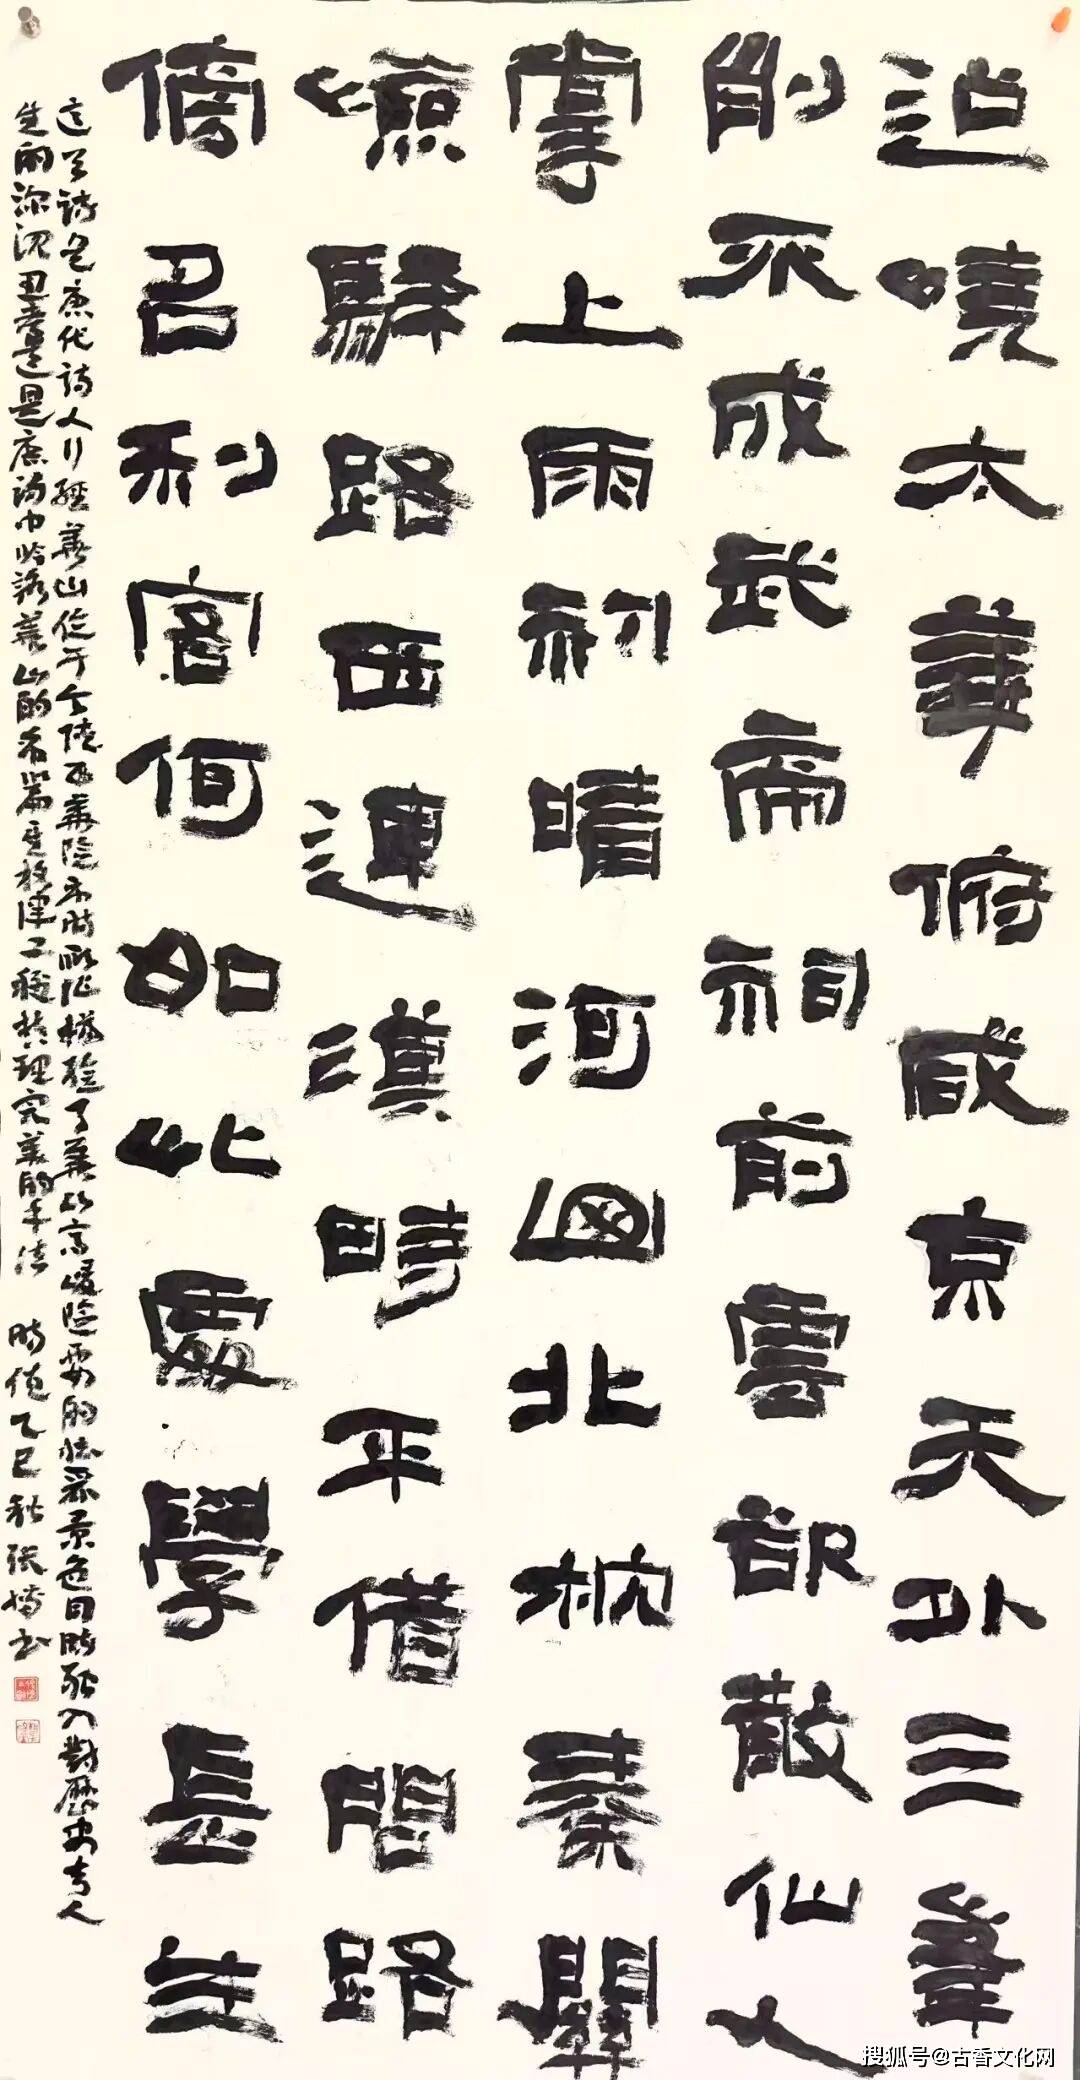 迢嶢太華俯咸京天外三峰
削不成武帝祠前雲欲散仙人
掌上雨初晴河山北枕秦關
險驛路西連漢時平借問路
傍名利客何如此處學長生
这首詩是唐代詩人行經華山位于今陕西華陰市時所作描繪了華山高峻險要的壮麗景色同時融入對歷史与人
生的深沉思考這是唐詩中吟詠華山的名篇 律工穩 完美的手法 時值乙巳秋張 書
搜狐号@古香文化网